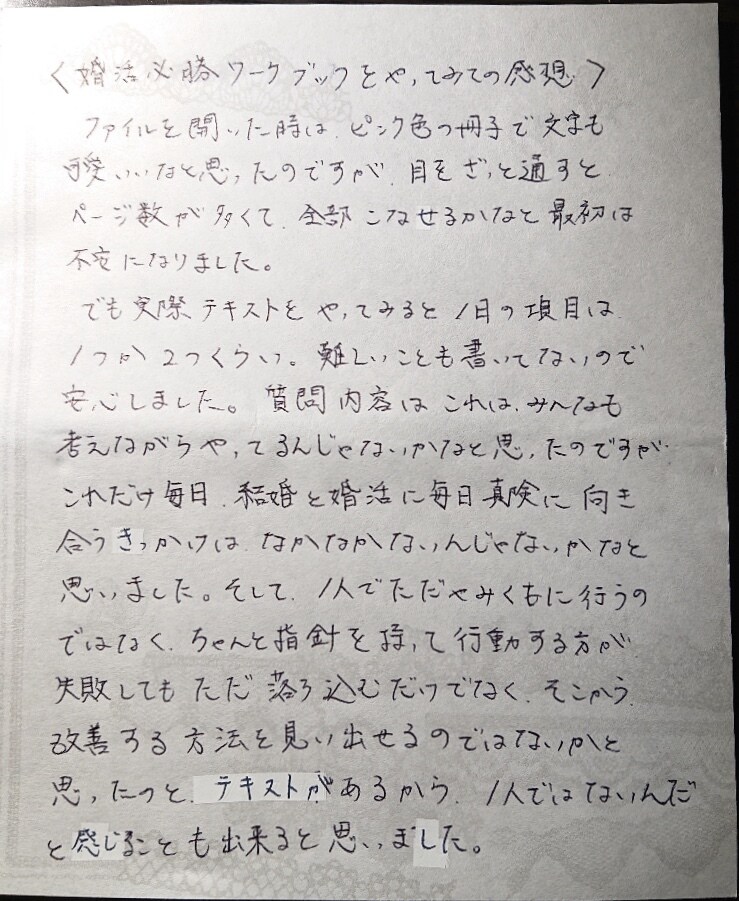 <婚活必勝ワークブックをやってみての感想>
ファイルを開いた時は、ピンク色の冊子で文字も
可愛いいなと思ったのですが、目をざっと通すと
ページ数が多くて、全部こなせるかなと最初は
不安になりました。
でも実際テキストをやってみると1日の項目は
1つか2つくらい。難しいことも書いてないので
安心しました。質問内容はこれは、みんなも
考えながらやってるんじゃないかなと思ったのですが
これだけ毎日、結婚と婚活に毎日真険に向き
合うきっかけは、なかなかないんじゃないかなと
思いました。そして、1人でただやみくもに行うの
ではなく、ちゃんと指針を持って行動する方が
失敗してもただ落ち込むだけでなく、そこから
改善する方法を見い出せるのではないかと
思ったのと、テキストがあるから、1人ではないんだ
と感じることも出来ると思いました。